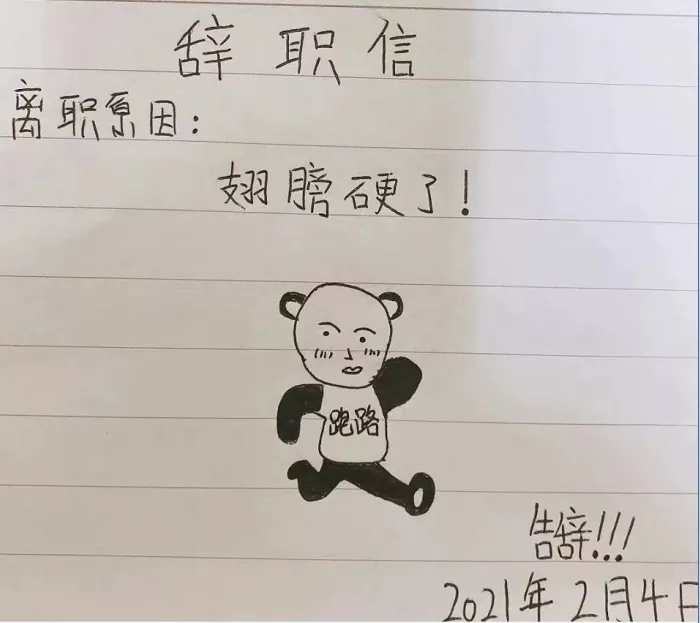 辞职信
离职原因：
翅膀硬了！
跑路
告辞!!!
2021年2月4日